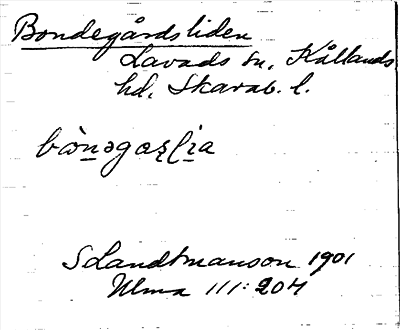 Bondegårdsliden
Lavads sn, Kållands
hd, Skarab. l.
S Landtmanson 1901
Ulma 111:204